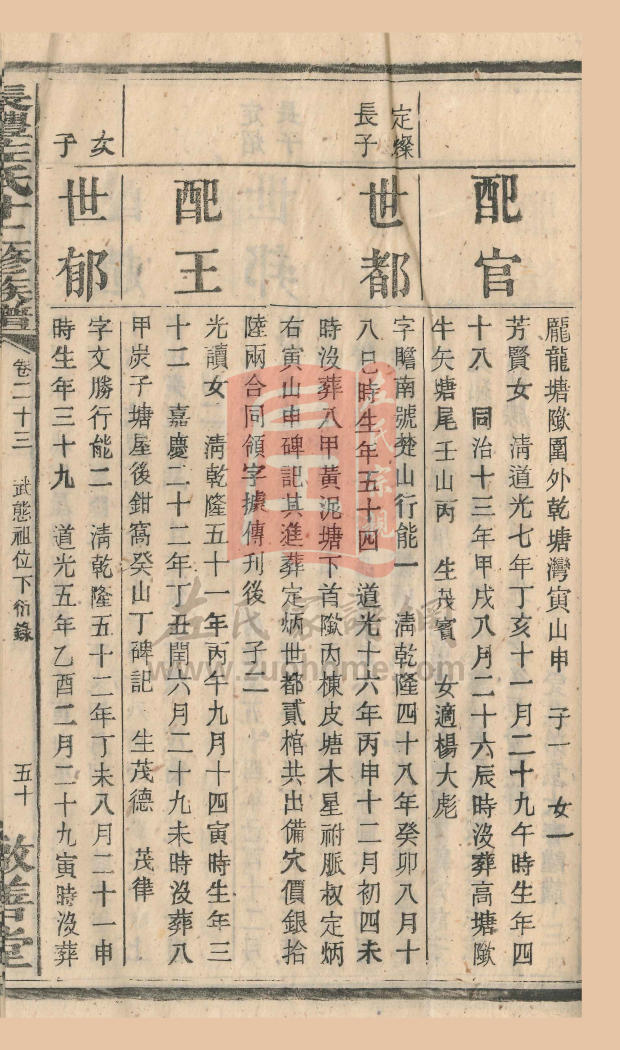 龎龍塘𨻶圍外乾塘灣寅山申　子一　女一
配官
芳賢女　淸道光七年丁亥十一月二十九午時生年四
十八　同治十三年甲戌八月二十六辰時沒葬高塘𨻶
牛矢塘尾壬山丙　生茂賓　女適楊大彪
定燦
長子
世都
字瞻南號楚山行能一　淸乾隆四十八年癸卯八月十
八巳時生年五十四　道光十六年丙申十二月初四未
時沒葬八甲黃泥塘下首𨻶內棟皮塘木星祔脈叔定炳
右寅山申碑記其進葬定炳世都貳棺共出備穴價銀拾
陸兩合同領字據傳刊後　子二
配王
光讀女　淸乾隆五十一年丙午九月十四寅時生年三
十二　嘉慶二十二年丁丑閏六月二十九未時沒葬八
甲炭子塘屋後鉗窩癸山丁碑記　生茂德　茂律
次
子
世郁
字文勝行能二　淸乾隆五十二年丁未八月二十一申
時生年三十九　道光五年乙酉二月二十九寅時沒葬
長澧左氏十二修族譜
卷二十三
武態祖位下衍錄
五十
敬善堂
左氏家譜網
www.zuohome.com